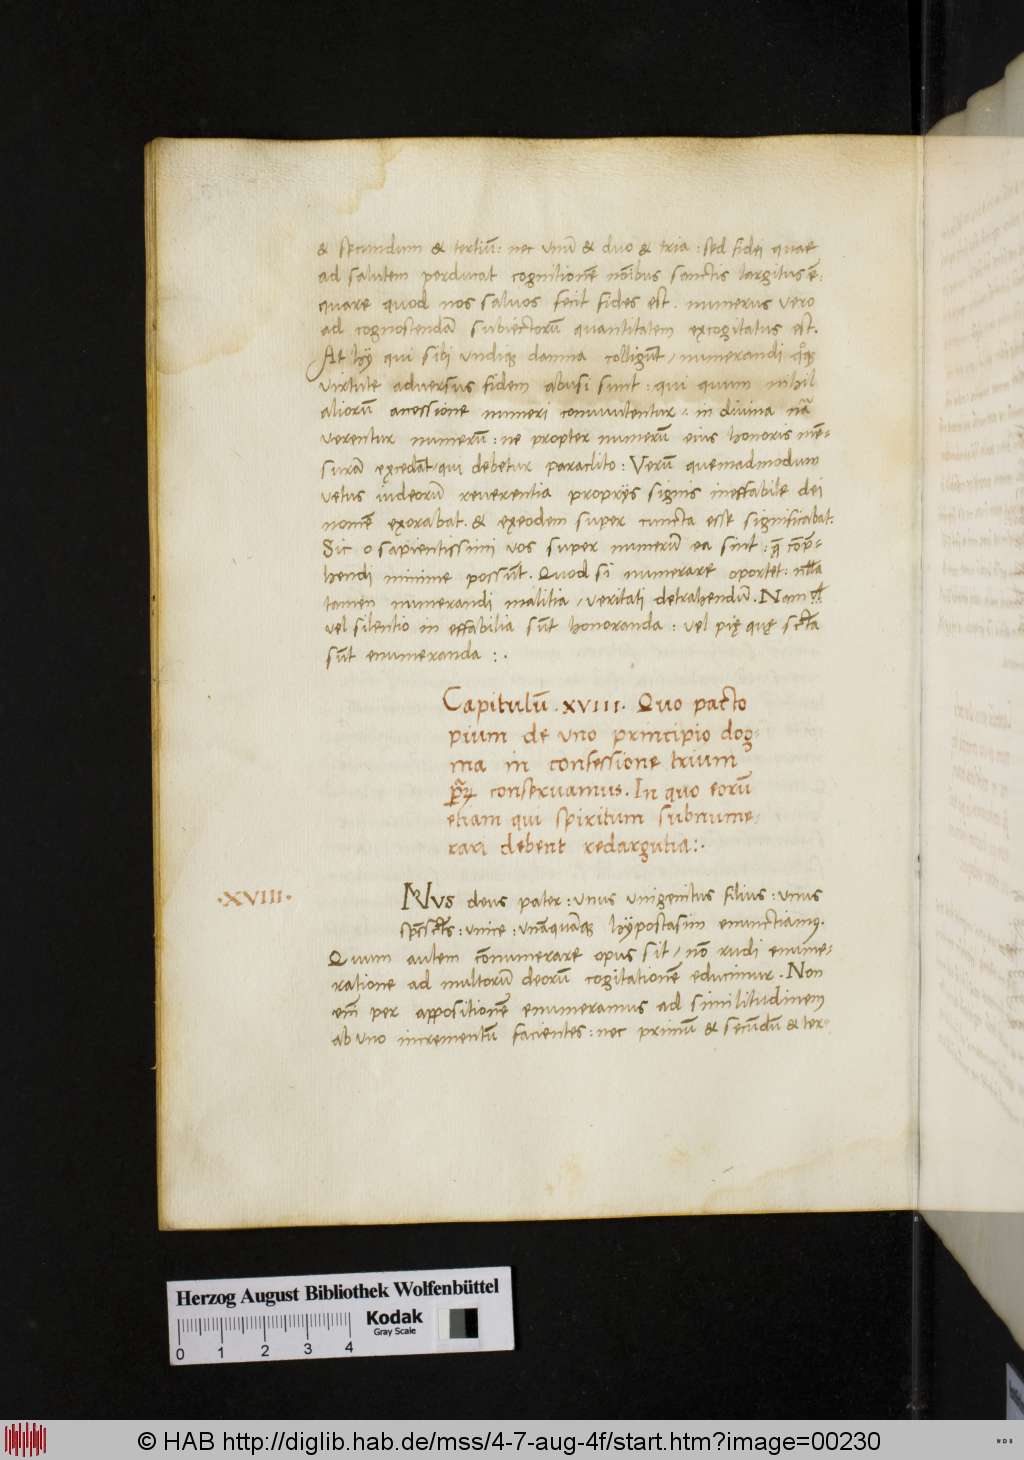 & secundum & tertiū: nec unū & duo & tria: sed fidei quae
ad salutem perducat cognitionē nōibus sanctis largitus ē:
quare quod nos salvos fecit fides est. numerus vero
ad cognoscendā subiectorū quantitatem excogitatus est.
At hÿ qui sibi undiq; damna colligūt / numerandi
virtute adversus fidem abusi sunt: qui quum nihil
aliorū accessione numeri convulentur: in divina nrā
verentur numerū: ne propter numerū eius honoris mē-
surā excedāt/qui debetur paraclito: Verū quemadmodum
vetus iudeorū reverentia proprÿs signis ineffabile dei
nomē exorabat. & exeodem super cuncta esse significabat:
Sic o sapientissimi vos super numerū ea sint: q̨ cōp̄-
hendi minime possūt. Quod si numerare oportet: nlla
tamen numerandi malitia / veritati detrahendū. Nam
vel silentio in effabilia sūt honoranda: vel pię quę sctā
sūt enumeranda :.
Capitulū .XVIII. Quo pacto
pium de uno principio dog-
ma in confessione trium
conservamus. In quo eorū
etiam qui spiritum subnume-
rari debent redargutia:.
·XVIII·
NVS deus pater: unus unigenitus filius: unus
sp̄s sctūs: unice: unāquāq; hÿpostasim enunctiamus.
Quum autem cōnumerare opus sit / nō rudi enume-
ratione ad multorū deorū cogitationē educimur. Non
em̄ per appositionē enumeramus ad similitudinem
ab uno incrementū facientes: nec primū & secūdū & ter-
Herzog August Bibliothek Wolfenbüttel
Kodak
Gray Scale
0 1 2 3 4
© HAB http://diglib.hab.de/mss/4-7-aug-4f/start.htm?image=00230